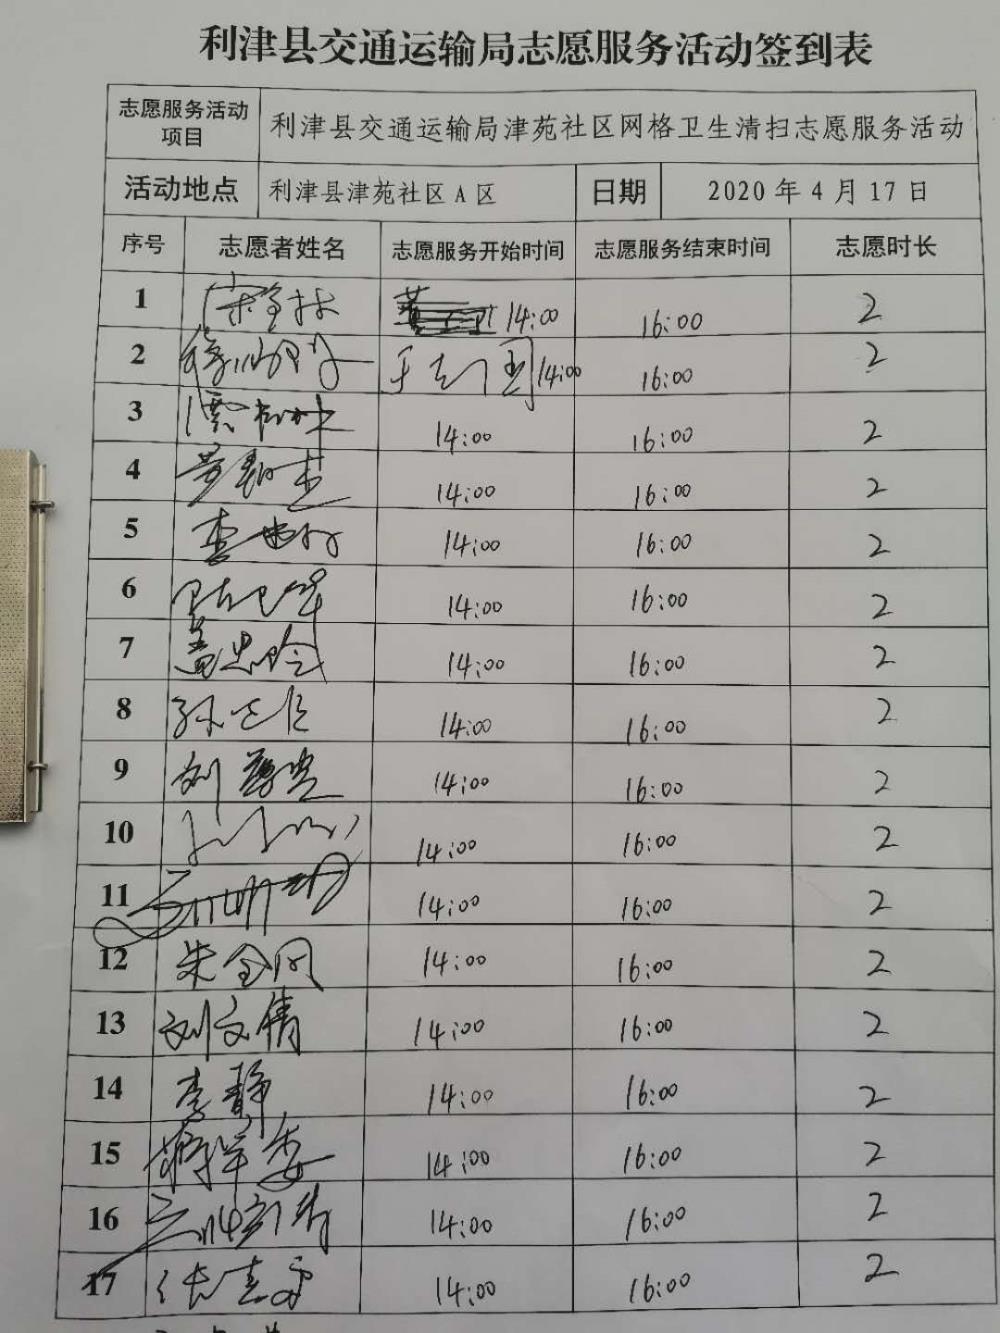 利津县交通运输局志愿服务活动签到表
志愿服务活动项目 利津县交通运输局津苑社区网格卫生清扫志愿服务活动
活动地点 利津县津苑社区A区 日期 2020年4月17日
序号 志愿者姓名 志愿服务开始时间 志愿服务结束时间 志愿时长
1 14:00 16:00 2
2 14:00 16:00 2
3 14:00 16:00 2
4 14:00 16:00 2
5 14:00 16:00 2
6 14:00 16:00 2
7 14:00 16:00 2
8 14:00 16:00 2
9 14:00 16:00 2
10 14:00 16:00 2
11 14:00 16:00 2
12 14:00 16:00 2
13 刘文倩 14:00 16:00 2
14 李静 14:00 16:00 2
15 14:00 16:00 2
16 14:00 16:00 2
17 14:00 16:00 2